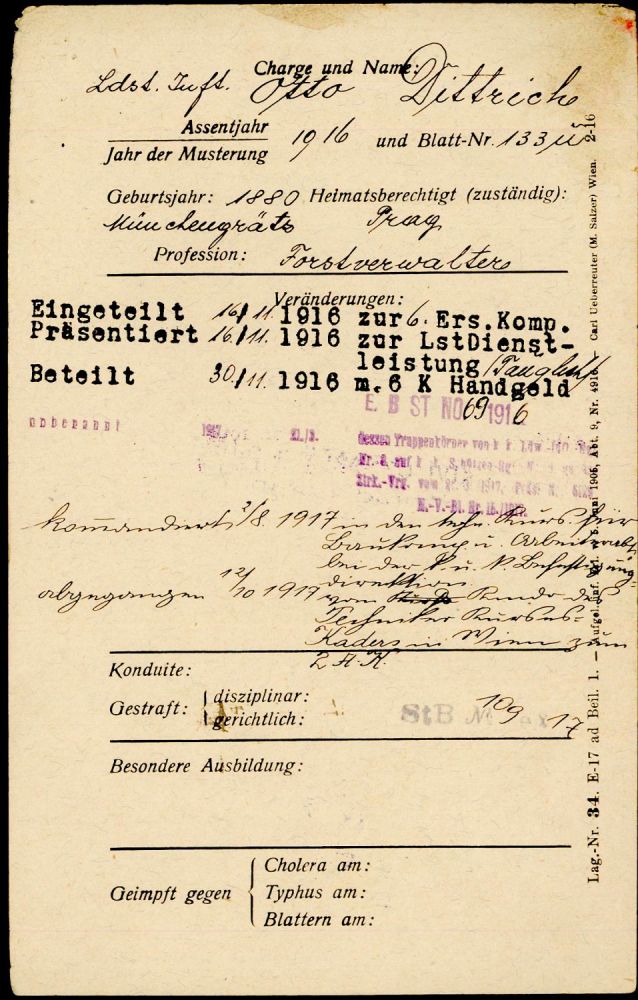 Charge und Name:
Ldst. Inft. Otto Dittrich
Assentjahr
Jahr der Musterung 1916 und Blatt-Nr. 133
Geburtsjahr: 1880 Heimatsberechtigt (zuständig):
Münchengrätz Prag
Profession: Forstverwalter
Veränderungen:
Eingeteilt 16/11 1916 zur 6. Ers.Komp.
Präsentiert 16/11. 1916 zur LstDienst-
leistung /Tauglich/
Beteilt 30/11. 1916 m. 6 K Handgeld
E B ST NO 69 1916
unbenannt 1917
dessen Truppenkörper von k k
N.-V.-Bl. Nr.
kommandiert 2/8. 1917 in den techn. Kurs für
Baukomp. u. Arbeiterabt.
bei der k. u. k. Befestigungs-
direktion
abgegangen 12/10 1917 vom Kmdo des
Techniker Kurses-
Kaders in Wien zum
2 A.K.
Konduite:
Gestraft: disziplinar:
gerichtlich:
StB 109 17
Besondere Ausbildung:
Geimpft gegen
Cholera am:
Typhus am:
Blattern am:
Lag.-Nr. 34. E-17 ad Beil. 1. — Aufgel. 1906, Abt. 9, Nr. 4916. Carl Ueberreuter (M. Salzer) Wien. 2-16